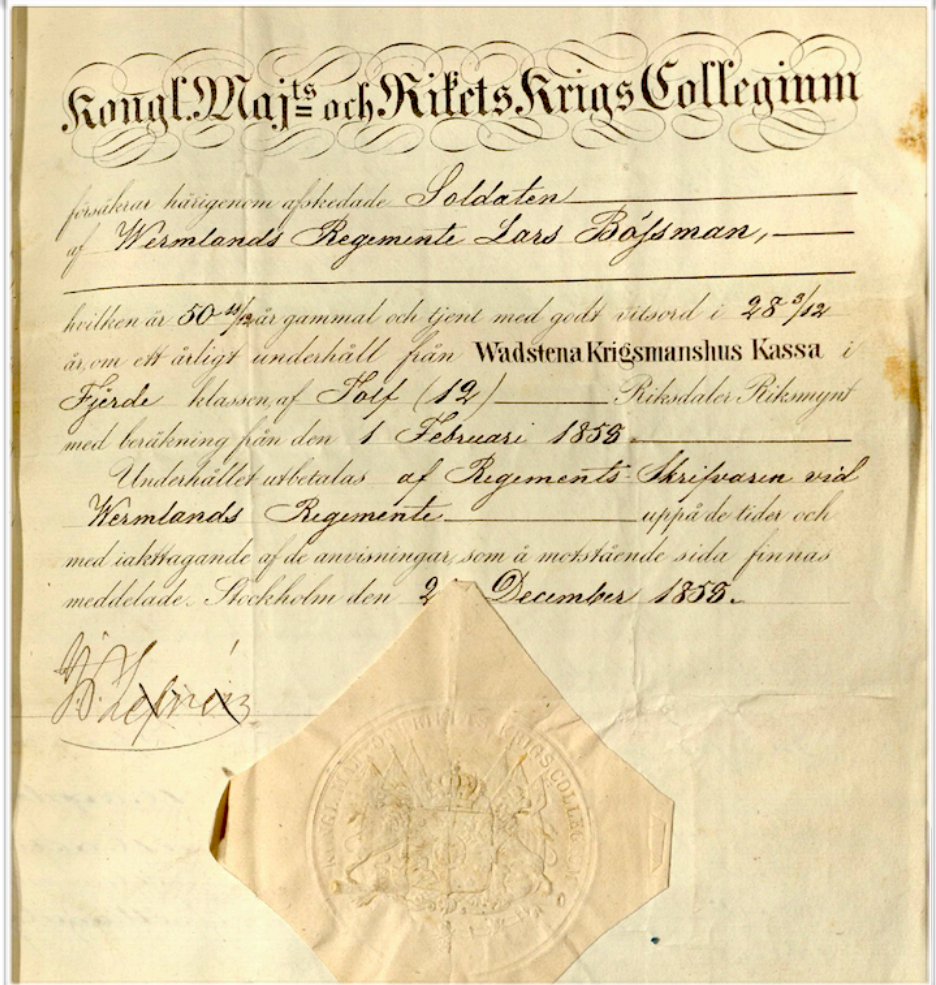 Kongl. Maj:ts och Rikets Krigs Collegium
försäkrar härigenom afskedade Soldaten
af Wermlands Regemente Lars Bössman,
hvilken är 50 11/12 år gammal och tjent med godt vitsord i 28 3/12
år, om ett årligt underhåll från Wadstena Krigsmanshus Kassa i
Fjerde klassen, af Tolf (12) Riksdaler Riksmynt
med beräkning från den 1 Februari 1858.
Underhållet utbetalas af Regements-Skrifvaren vid
Wermlands Regemente uppå de tider och
med iakttagande af de anvisningar, som å motstående sida finnas
meddelade. Stockholm den 2 December 1858.
KRIGS COLLEGIUM